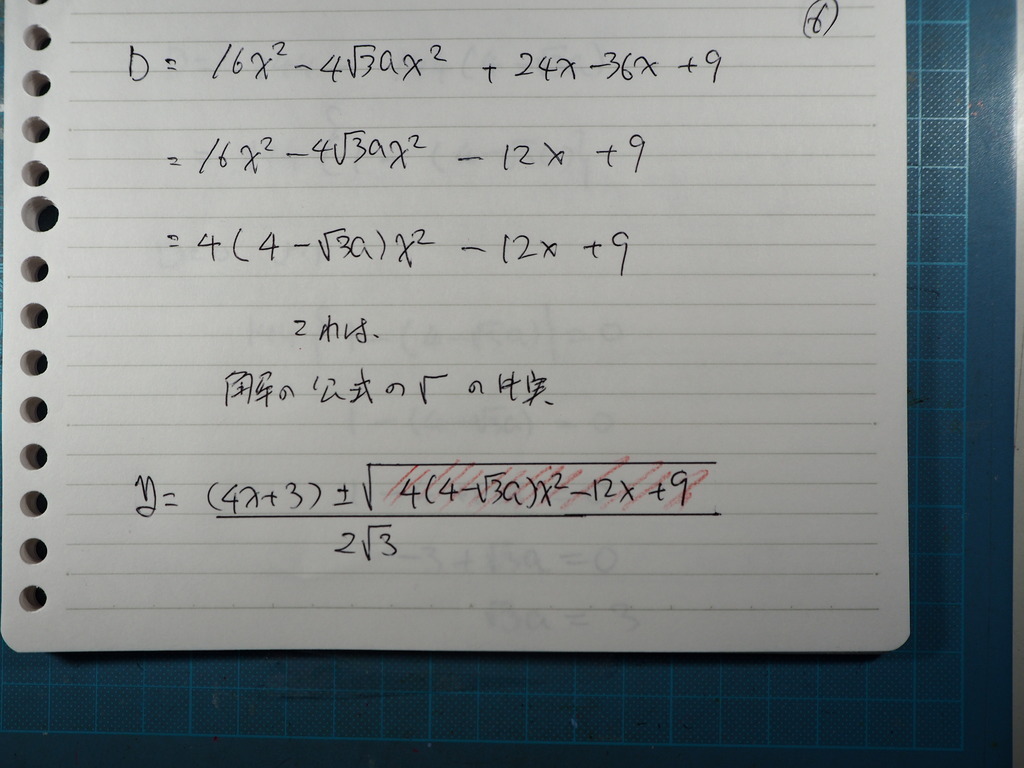 (6)
D = 16x² - 4√3ax² + 24x - 36x + 9
= 16x² - 4√3ax² - 12x + 9
= 4(4 - √3a)x² - 12x + 9
これは、
解の公式の√の中実
y = (4x+3) ± √4(4-√3a)x² - 12x + 9
2√3